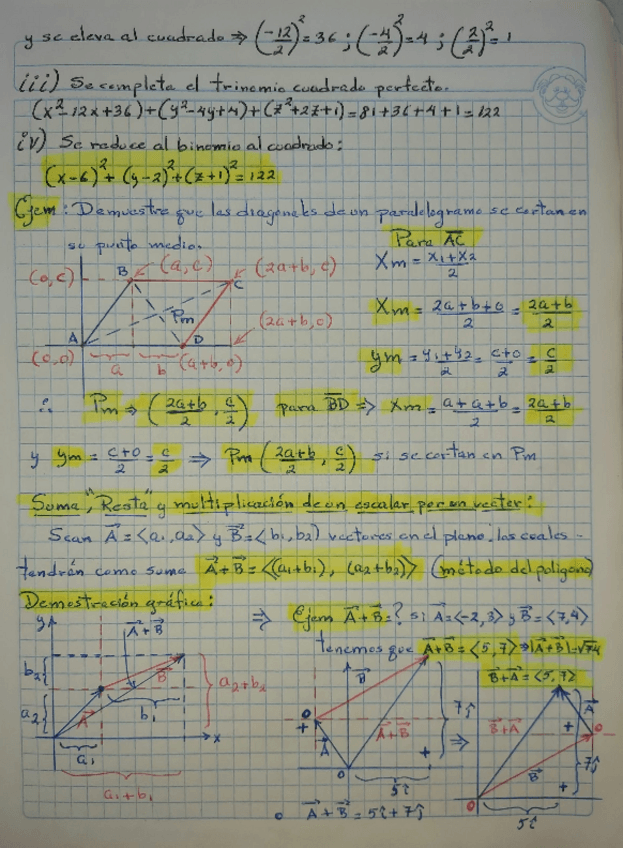 y se eleva al cuadrado ⇒ (-12/2)² = 36 ; (-4/2)² = 4 ; (2/2)² = 1
iii) Se completa el trinomio cuadrado perfecto.
(x²-12x+36)+(y²-4y+4)+(z²+2z+1)=81+36+4+1=122
iv) Se reduce al binomio al cuadrado:
(x-6)²+(y-2)²+(z+1)²=122
Ejem: Demuestre que las diagonales de un paralelogramo se cortan en
su punto medio.
Para AC
Xm = (x₁+x₂)/2
(0,c) B (a,c) (2a+b,c)
C
Xm = (2a+b+0)/2 = (2a+b)/2
Pm
(2a+b,0)
A D
ym = (y₁+y₂)/2 = (c+0)/2 = c/2
(0,0) a b (a+b,0)
∴ Pm ⇒ ((2a+b)/2, c/2) para BD ⇒ Xm = (a+a+b)/2 = (2a+b)/2
y ym = (c+0)/2 = c/2 ⇒ Pm ((2a+b)/2, c/2) si se cortan en Pm
Suma, "Resta" y multiplicación de un escalar por un vector:
Sean A⃗ = <a₁,a₂> y B⃗ = <b₁,b₂> vectores en el plano, los cuales -
tendrán como suma A⃗+B⃗ = <(a₁+b₁), (a₂+b₂)> (método del polígono)
Demostración gráfica: ⇒ Ejem A⃗+B⃗ = ? si A⃗ = <-2,3> y B⃗ = <7,4>
tenemos que A⃗+B⃗ = <5,7> ⇒ |A⃗+B⃗| = √74
y A⃗+B⃗
B⃗+A⃗ = <5,7>
b₂ B⃗ a₂+b₂
B⃗ 7ĵ
a₂ A⃗ b₁ x
A⃗ A⃗+B⃗ + ⇒
B⃗+A⃗ A⃗ + 7ĵ
a₁
0 5î
B⃗ +
a₁+b₁
0 5î
A⃗+B⃗ = 5î+7ĵ